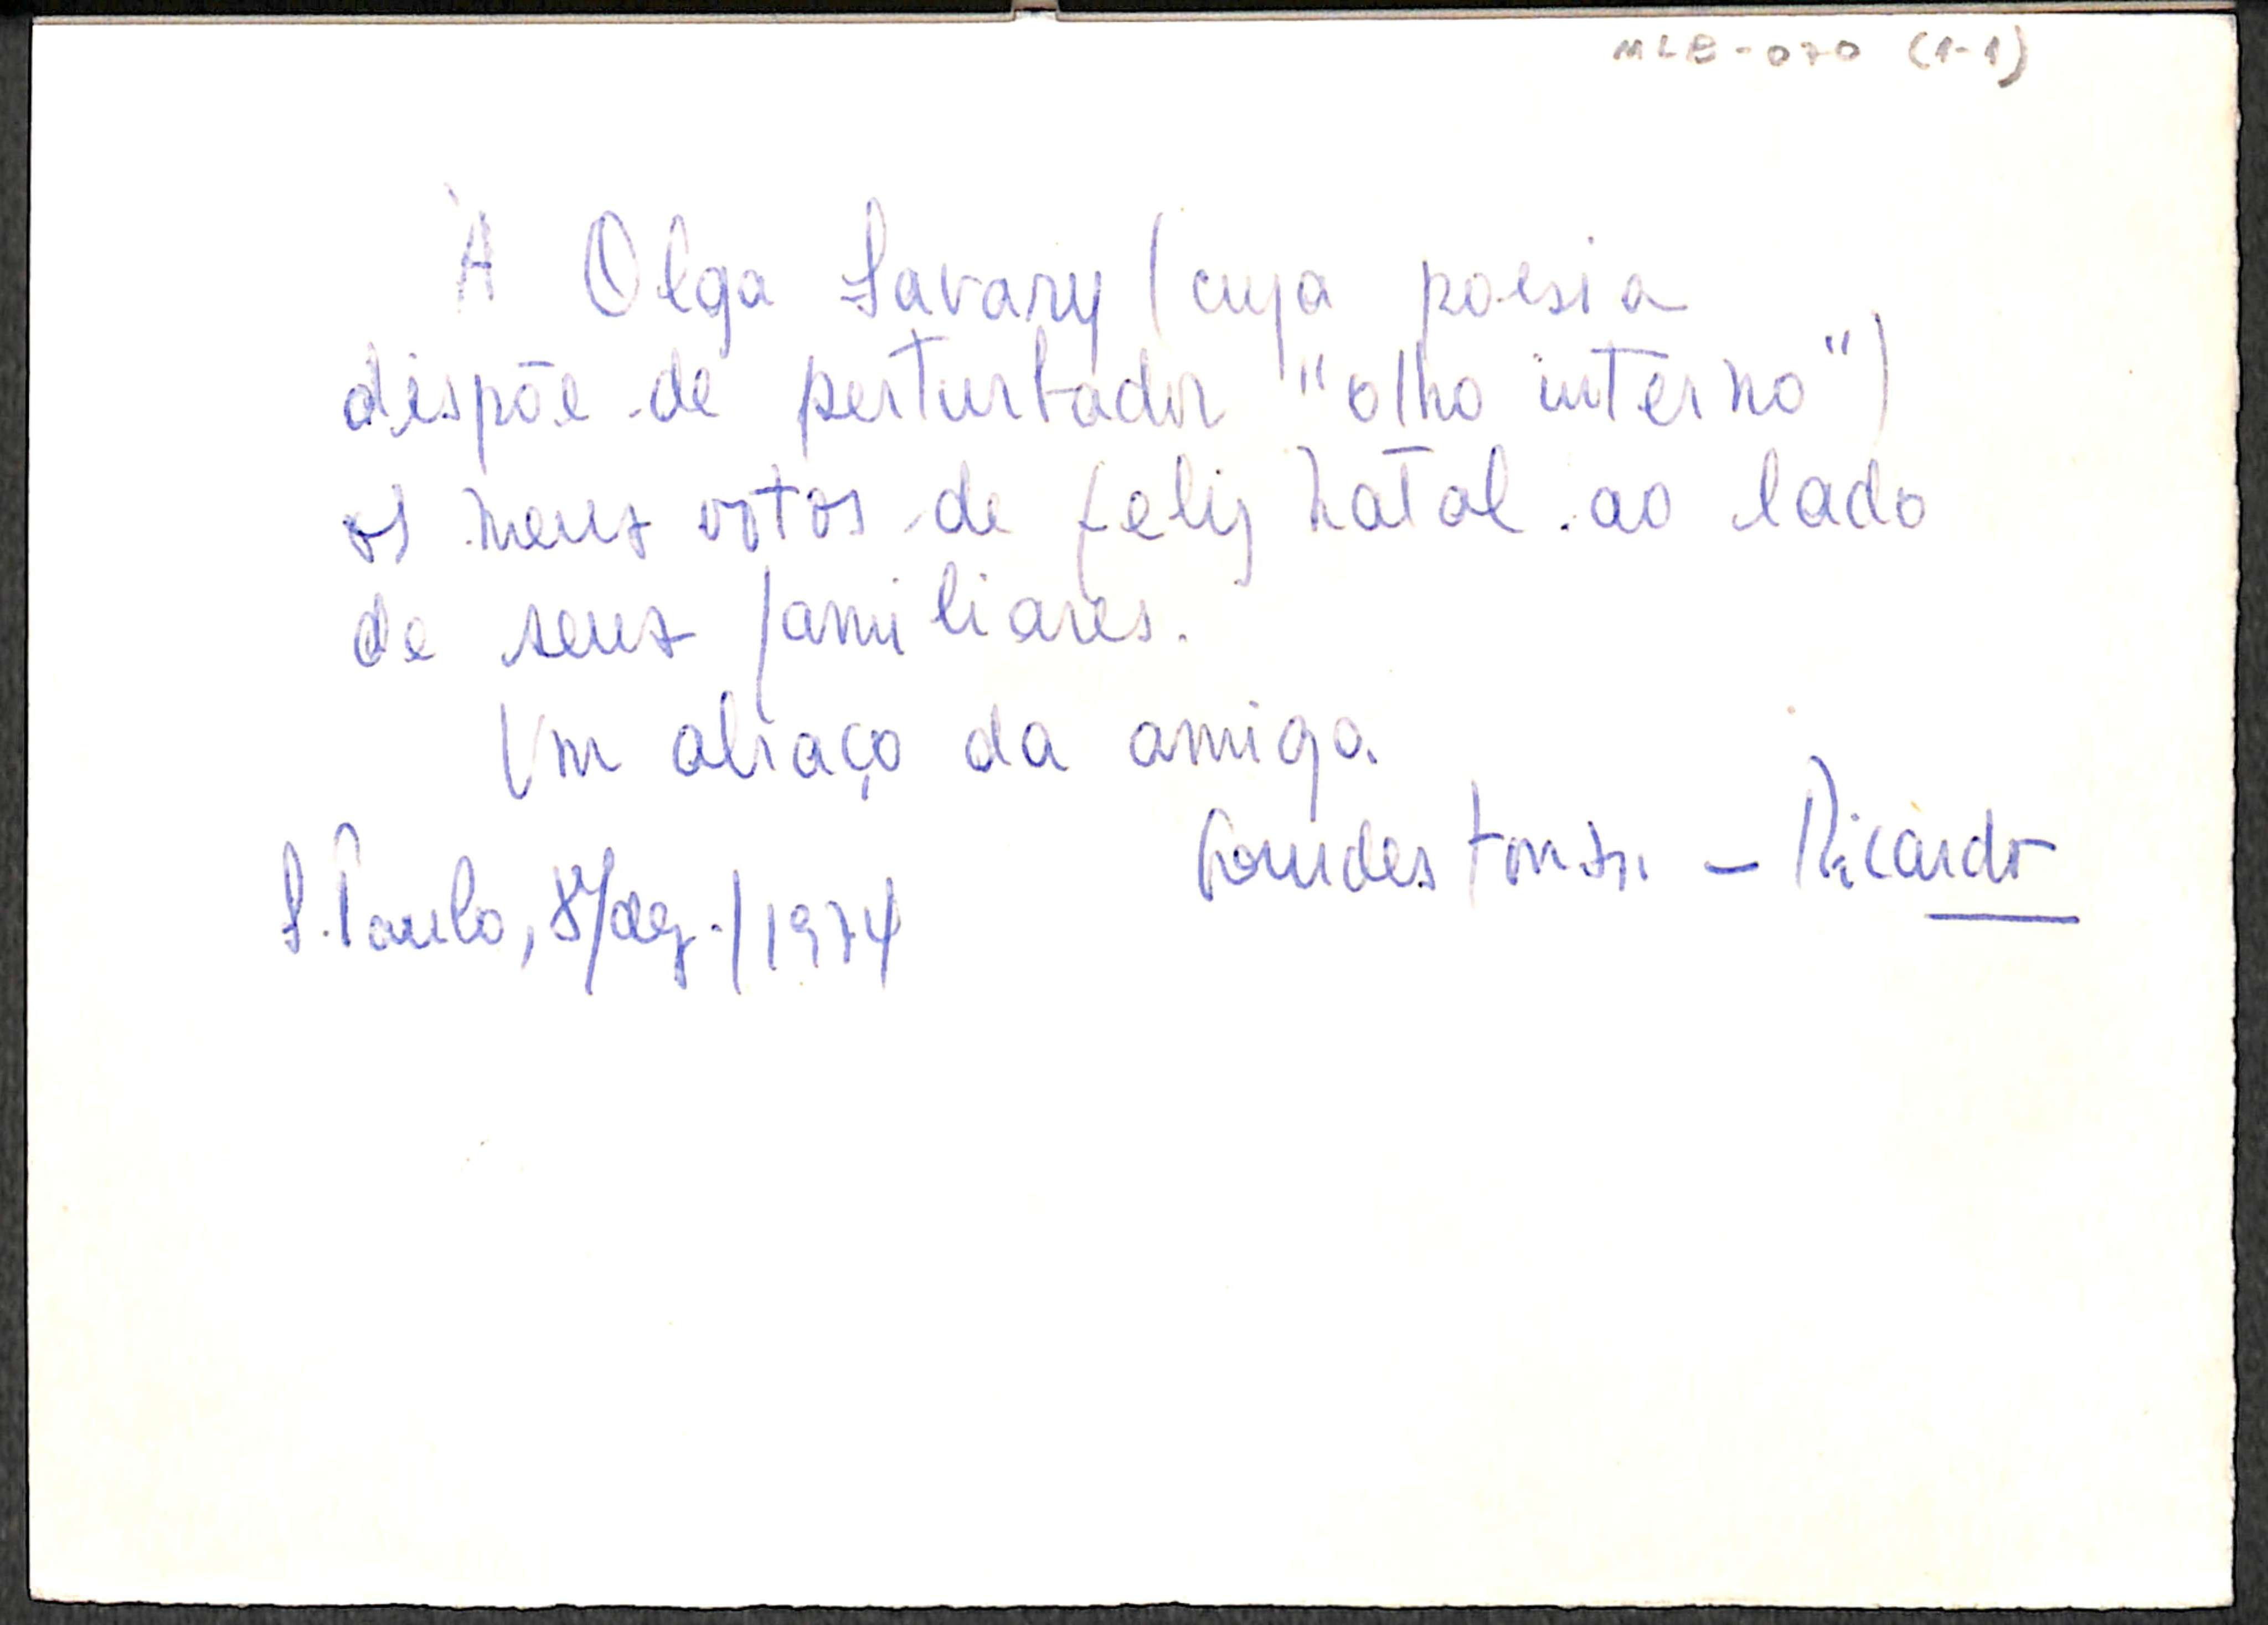 MLB-070 (1-1)
À Olga Savary (cuja poesia
dispõe de perturbador "olho interno")
os meus votos de feliz natal ao lado
de seus familiares.
Um abraço da amiga
Lourdes - Ricardo
S. Paulo, /dez./1974